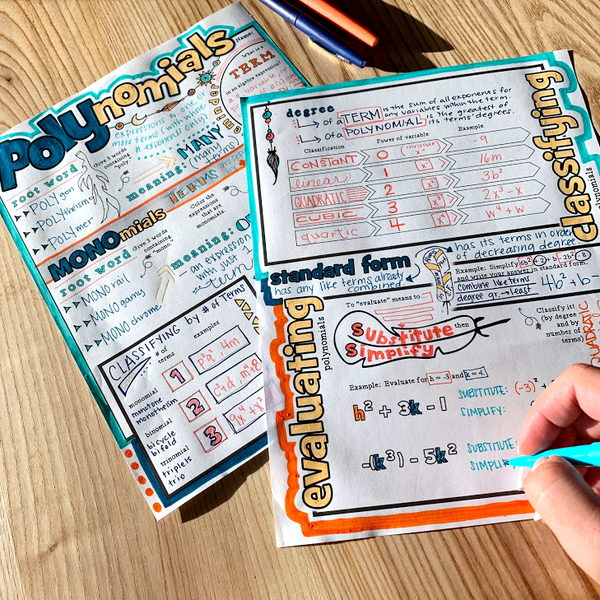 POLYnomials
Name:
What is a
TERM
in an algebra expression?
expressions w/ one or
more terms
MANY
(many
terms)
root word
Give 3 words
containing
"poly"
meaning:
POLYgon
POLYtheism
POLYmer
TERMS
MONOmials
Color the
expressions
that are
monomials.
root word
Give 3 words
containing
"mono"
meaning:
MONO rail
MONO gamy
MONO chrome
an expression
with just
CLASSIFYING by # of Terms
# of
terms
examples
monomial
monotone
monotheism
1
binomial
bicycle
bifold
2
trinomial
triplets
trio
3
classifying
polynomials
degree
of a TERM is the sum of all exponents for
any variables within the term.
of a POLYNOMIAL is the greatest of
its terms' degrees.
Classification
Power of variable
Example
CONSTANT
0
invisible
x⁰
9
linear
1
x¹
16m
QUADRATIC
2
x²
3b²
CUBIC
3
x³
2x³-x
quartic
4
x⁴
w⁴+w
standard form
has its terms in order
of decreasing degree
has any like terms already
combined
Example: Simplify
and write your answer in standard form.
Combine like terms
degree gr.→least
4b²+b
evaluating
polynomials
To "evaluate" means to....
Substitute
then
Simplify
Classify it!
(by degree
and by
number of
terms)
QUADRATIC
Example: Evaluate for h = -3 and k = 4.
h² + 3k - 1
SUBSTITUTE: (-3)²
SIMPLIFY:
-(k³) - 5k²
SUBSTITUTE:
SIMPLI